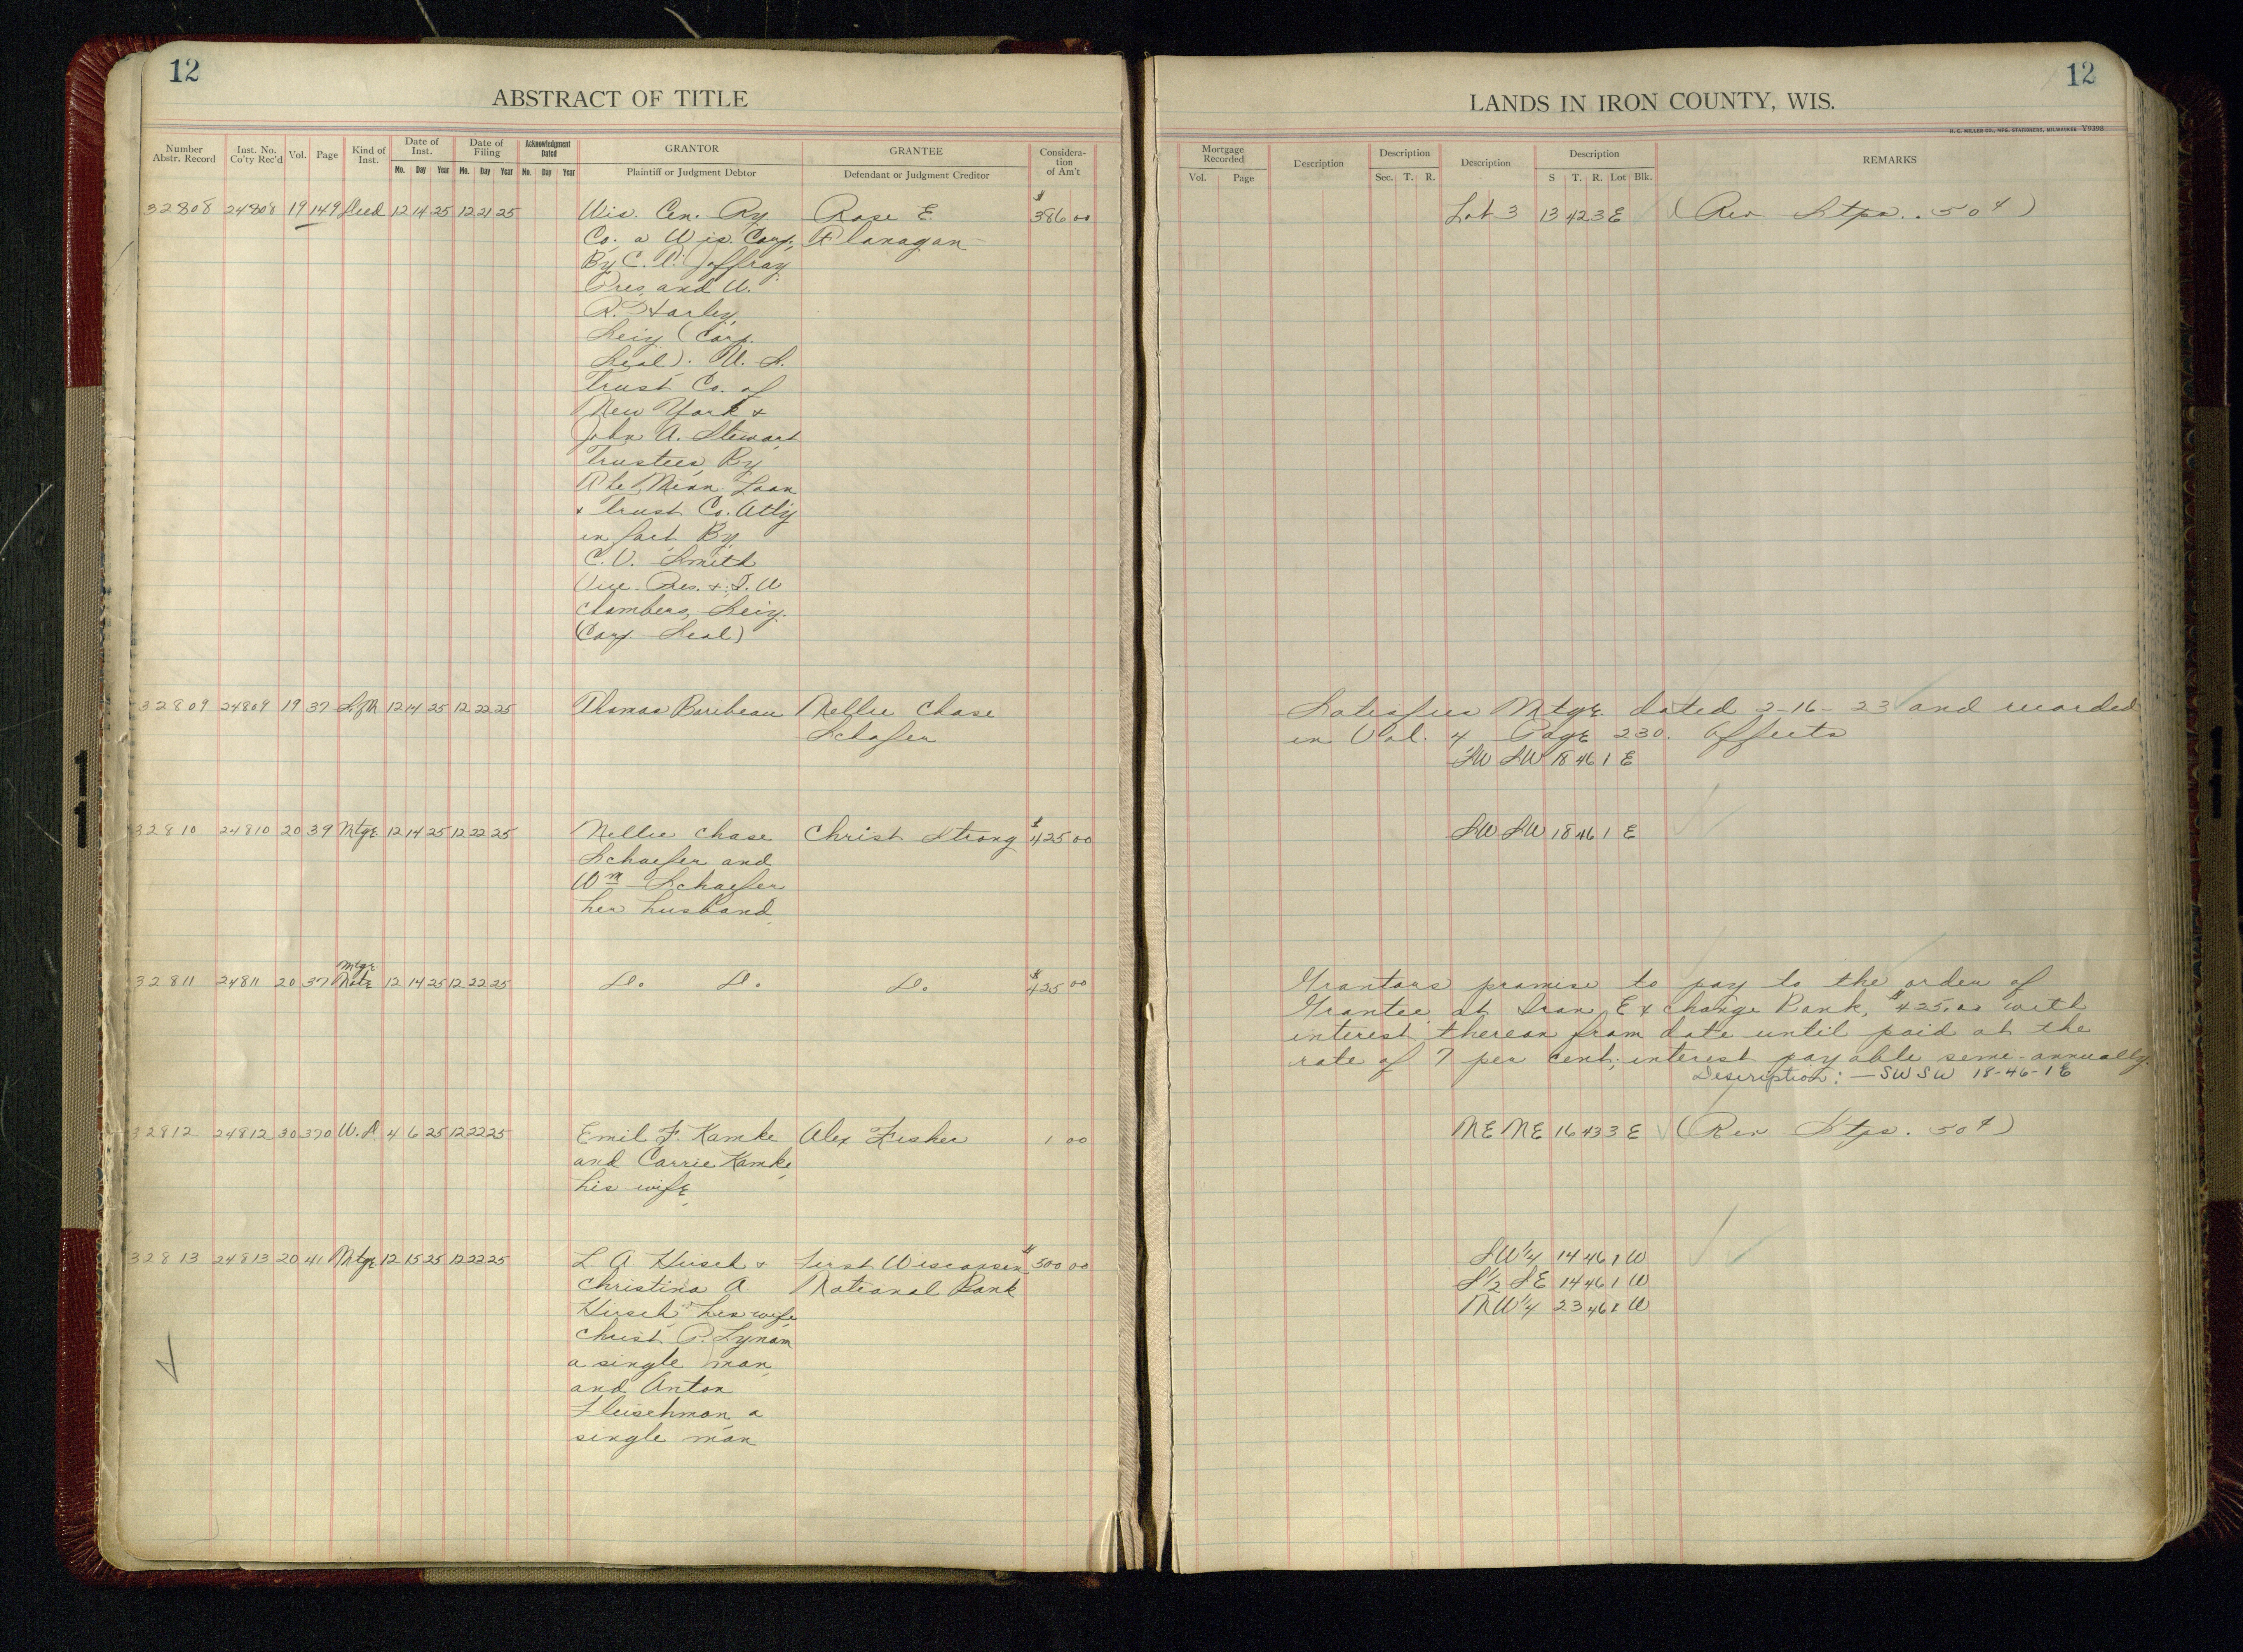 12
ABSTRACT OF TITLE
Number Abstr. Record
Inst. No. Co'ty Rec'd
Vol.
Page
Kind of Inst.
Date of Inst.
Mo. Day Year
Date of Filing
Mo. Day Year
Acknowledgment Dated
Mo. Day Year
GRANTOR
Plaintiff or Judgment Debtor
GRANTEE
Defendant or Judgment Creditor
Considera-tion of Am't
32808 24808 19 149 Deed 12 14 25 12 21 25 Wis. Cen. Ry Rose E. $386 00
Co. a Wis. Corp, Flanagan
By C. P. Jaffray
Pres, and W.
R. Harley,
Secy (Corp.
Seal). U. S.
Trust Co. of
New York &
John A. Stewart
Trustees, By
The Minn. Loan
& Trust Co. Atty
in fact By
C. V. Smith
Vice Pres. & T. W
Chambers, Secy.
(Corp. Seal)
32809 24809 19 37 12 14 25 12 22 25 Thomas Baribeau Nellie Chase
Schafer
32810 24810 20 39 Mtge. 12 14 25 12 22 25 Nellie Chase Christ Strong $425 00
Schaefer and
Wm Schaefer
her husband,
Mtge.
32811 24811 20 37 Note 12 14 25 12 22 25 Do. Do. Do. $425 00
32812 24812 30 370 W. D. 4 6 25 12 22 25 Emil F. Kamke Alex Fisher 1 00
and Carrie Kamke,
his wife,
32813 24813 20 41 Mtge 12 15 25 12 22 25 L. A Husch & First Wisconsin $500 00
Christina A. National Bank
Husch his wife
Christ P. Lynam
a single man,
and Anton
Fleischman, a
single man
12
LANDS IN IRON COUNTY, WIS.
H. C. MILLER CO., MFG. STATIONERS, MILWAUKEE Y9398
Mortgage Recorded
Vol. Page
Description
Description
Sec. T. R.
Description
Description
S T. R. Lot Blk.
REMARKS
Lot 3 13 42 3 E (Rev Stps.. 50¢)
Satisfies Mtge. dated 2-16-23 and recorded
in Vol. 4 Page 230. Affects
SW SW 18 46 1 E
SW SW 18 46 1 E
Grantors promise to pay to the order of
Grantee at Iron Exchange Bank, $425.00 with
interest thereon from date until paid at the
rate of 7 per cent; interest payable semi-annually.
Description: — SW SW 18-46-1 E
NE NE 16 43 3 E (Rev Stps. 50¢)
SW¼ 14 46 1 W
S½ SE 14 46 1 W
NW¼ 23 46 1 W